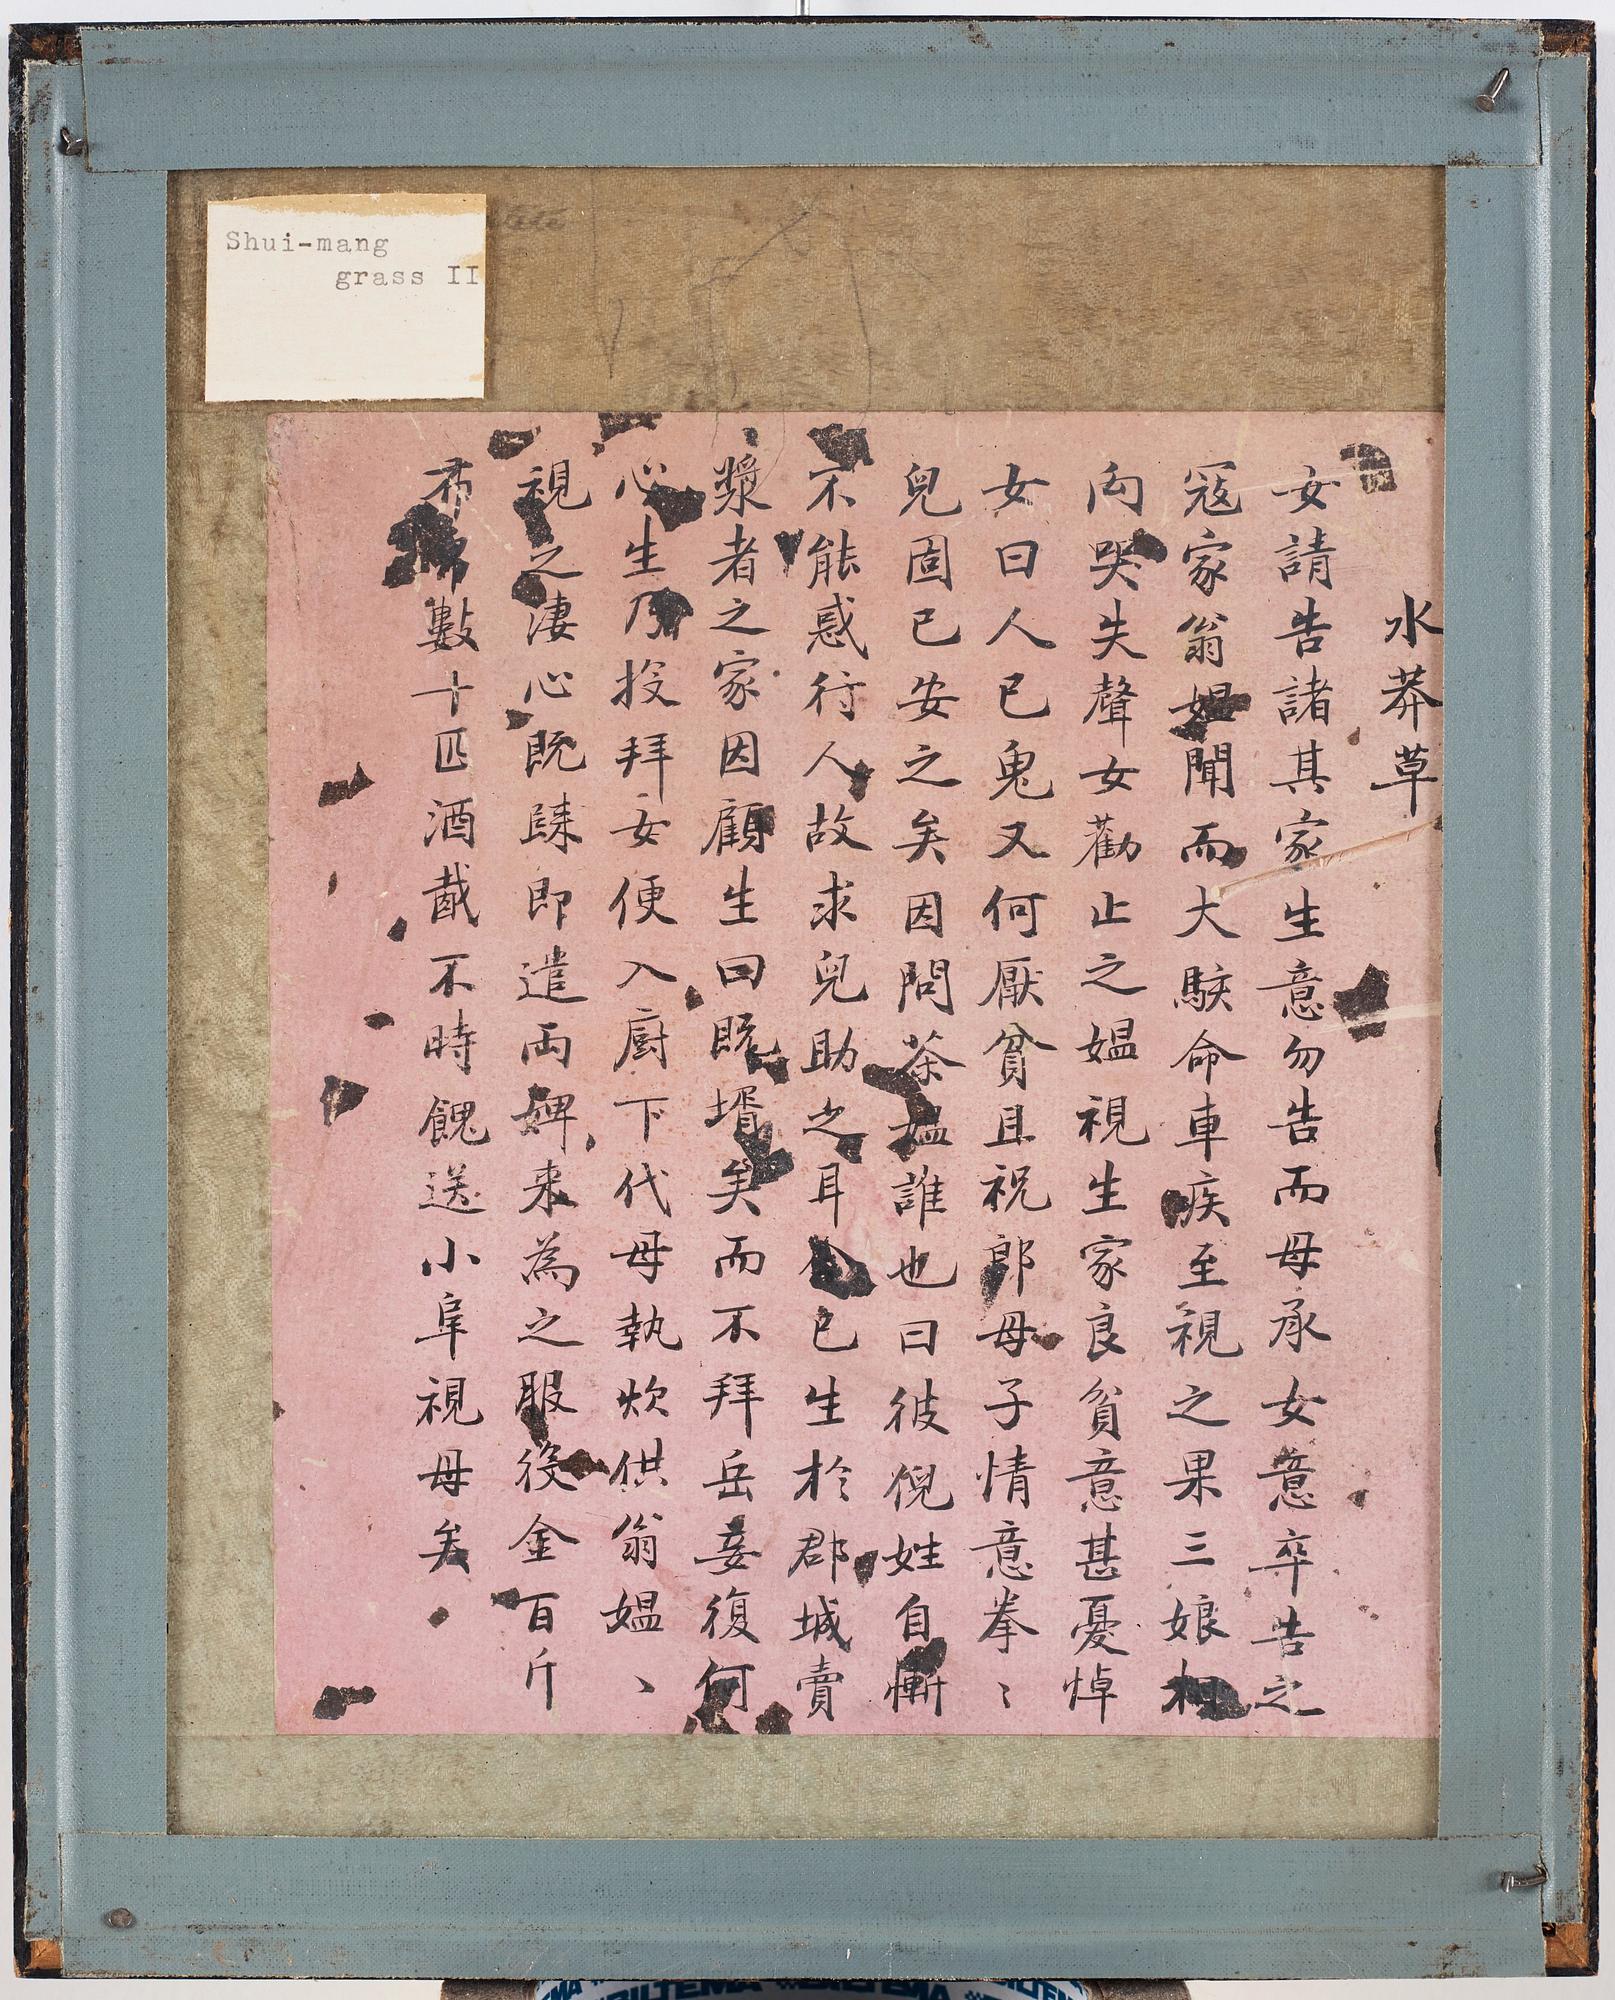 Shui-mang
grass II
水莽草
女請告諸其家生意勿告而母承女意卒告之
寇家翁媼聞而大駭命車疾至視之果三娘相
向哭失聲女勸止之媼視生家良貧意甚憂悼
女曰人已鬼又何厭貧且祝郎母子情意拳〻
兒固已安之矣因問茶媼誰也曰彼倪姓自慚
不能惑行人故求兒助之耳今已生於郡城賣
漿者之家因顧生曰既壻矣而不拜岳妾復何
心生乃投拜女便入廚下代母執炊供翁媼〻
視之淒心既歸即遣兩婢来為之服役金百斤
布帛數十匹酒胾不時餽送小阜視母矣